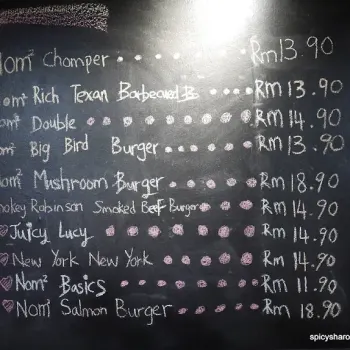 Nom² Chomper RM 13.90
Nom² Rich Texan Barbecued B RM 13.90
Nom² Double RM 14.90
Nom² Big Bird Burger RM 13.90
Nom² Mushroom Burger RM 18.90
Smokey Robinson Smoked Beef Burger RM 14.90
Juicy Lucy RM 14.90
New York New York RM 14.90
Nom² Basics RM 11.90
Nom² Salmon Burger RM 18.90
spicysharo